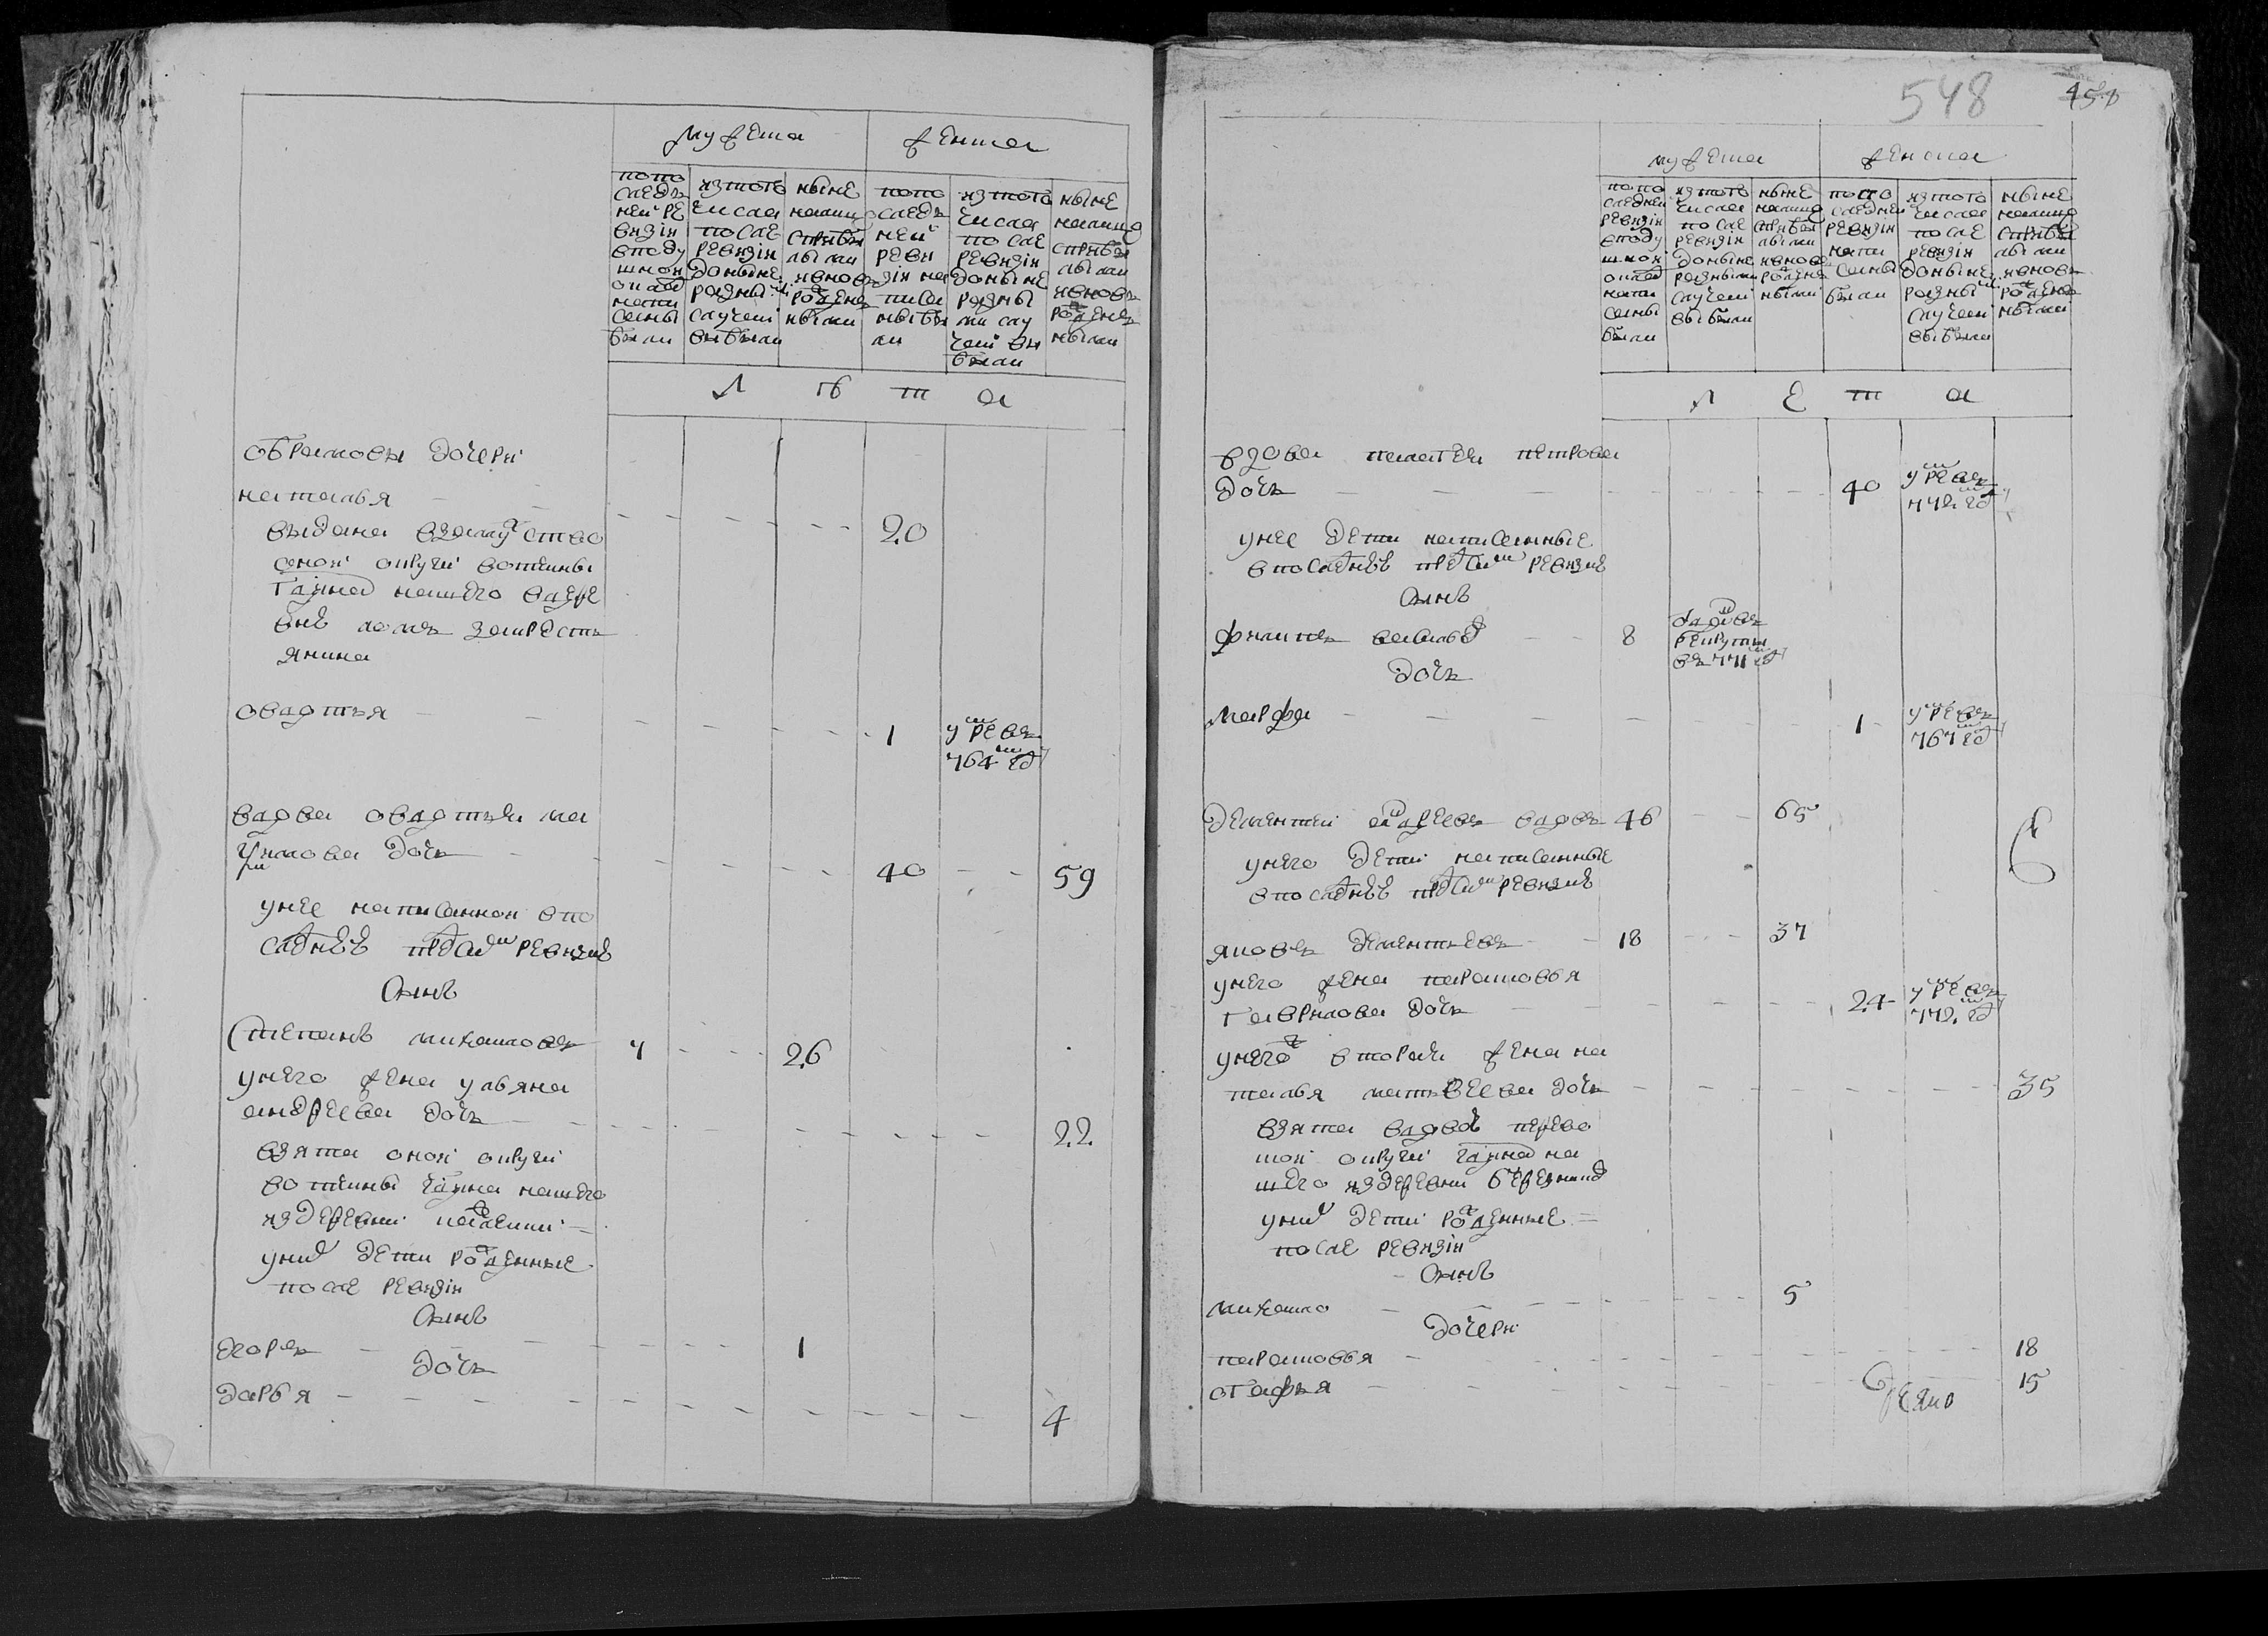 мужеска женска
по по
следъ
ней ре
визіи
в поду
шном
окладе
напи
саны
были
из того
числа
после
ревизіи
до ныне
разными
случеи
выбыли
ныне
на лицо
с прибы
лыми
и внов
рожден
ными
по по
следъ
ней
реви
зіи на
писа
ны бы
ли
из того
числа
после
ревизіи
до ныне
разны
ми слу
чеи вы
были
ныне
на лицо
с прибы
лыми
и вновь
рожден
ными
л ѣ т а
абрамовы дочери
наталья
выдана взамужство 20
оной округи вотчины
ево жъ
янина
овдотья 1 умре въ
764 году
вдова овдотья ма
ксимова дочь 40 59
у нее написанной в по
следней пред сим ревизиѣ
сынъ
степанъ михаиловъ 7 26
у него жена ульяна
андреева дочь 22
взята оной округи
вотчины нашего
из деревни
у них дети рожденные
после ревизіи
сынъ
егоръ 1
дочь
дарья 4
548
мужеска женска
по по
следней
ревизіи
в поду
шном
окладе
напи
саны
были
из того
числа
после
ревизіи
до ныне
разными
случеи
выбыли
ныне
на лицо
с прибы
лыми
и внов
рожден
ными
по по
следней
ревизіи
напи
саны
были
из того
числа
после
ревизіи
до ныне
разны
случеи
выбыли
ныне
на лицо
с прибы
лыми
и вновь
рожден
ными
л е т а
вдова пелагея петрова
дочь 40 умре въ
772 году
у нее дети написанные
в последней пред сим ревизиѣ
сынъ
филипъ васильев 8 отдан въ
рекруты
въ 771 году
дочь
марфа 1 умре въ
767 году
дементей андреевъ вдовъ 46 65
у него дети написанные
в последней пред сим ревизиѣ
яковъ дементьевъ 18 37
у него жена парасковья
гаврилова дочь 24 умре въ
772 году
у него ж вторая жена на
талья матвеева дочь 35
взята вдовой
округи на
шего из деревни
у них дети рожденные
после ревизіи
сынъ
михаило 5
дочери
парасковья 18
огафья 15